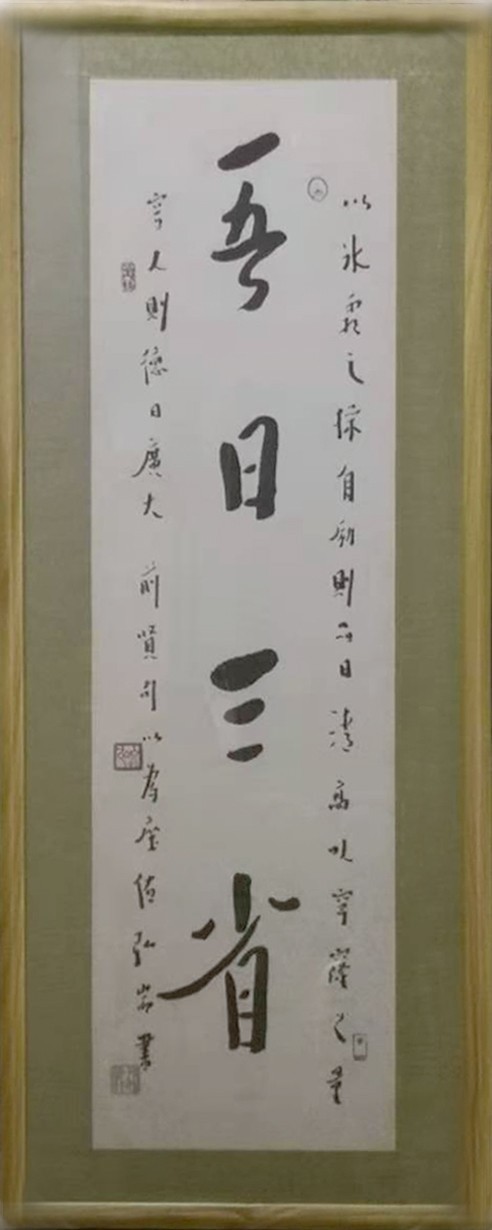 以冰霜之操自勵則品日清高以穹窿之量
吾日三省
容人則德日廣大 前賢句以為座 弘 書